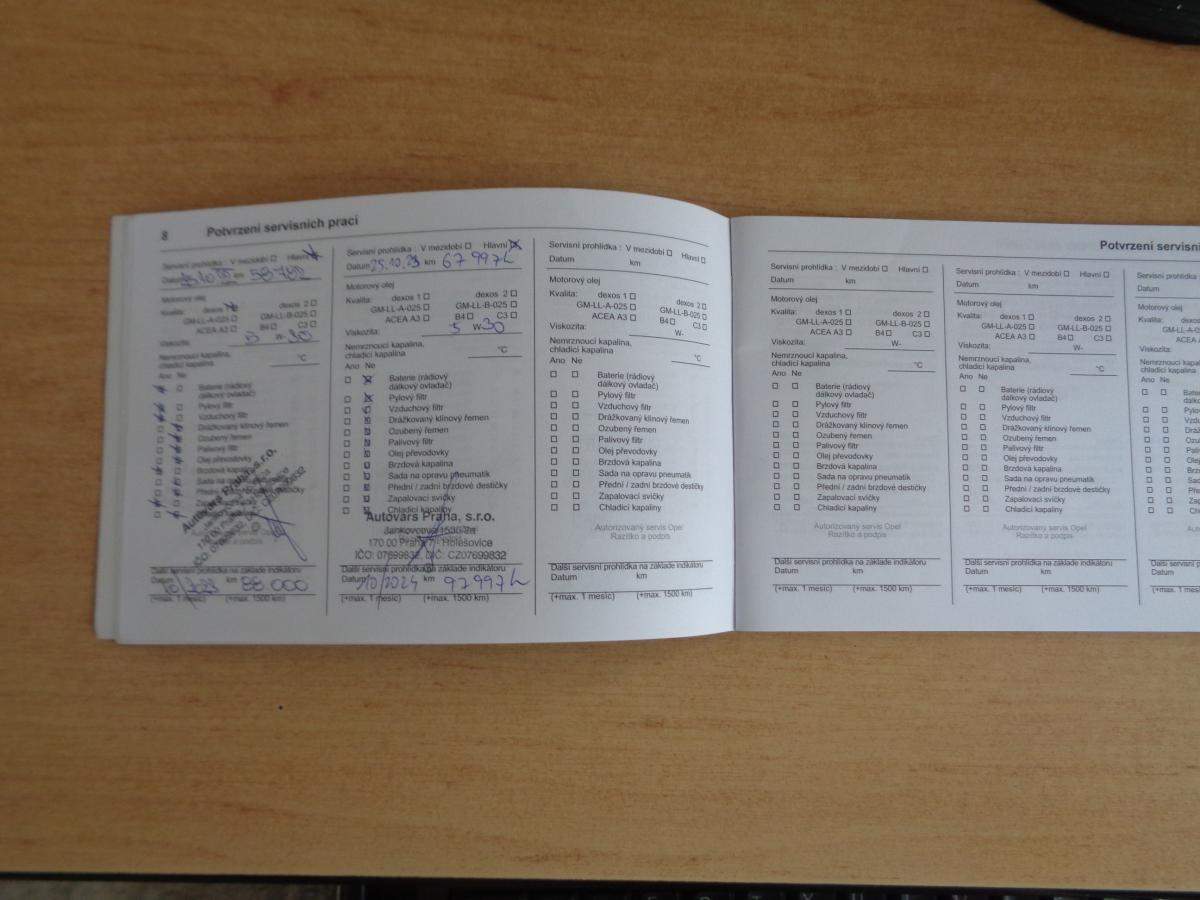 8 Potvrzení servisních prací
Servisní prohlídka : V mezidobí Hlavní
Datum km 58782
Motorový olej
Kvalita: dexos 1 dexos 2
GM-LL-A-025 GM-LL-B-025
ACEA A3 B4 C3
Viskozita: 5 W- 30
Nemrznoucí kapalina,
chladicí kapalina °C
Ano Ne
Baterie (rádiový
dálkový ovladač)
Pylový filtr
Vzduchový filtr
Drážkovaný klínový řemen
Ozubený řemen
Palivový filtr
Olej převodovky
Brzdová kapalina
Sada na opravu
Přední / zadní brzdové destičky
Autovars Praha, s.r.o.
Další servisní prohlídka na základě indikátoru
Datum 10/2023 km 88 000
(+max. 1 měsíc) (+max. 1500 km)
Servisní prohlídka : V mezidobí Hlavní
Datum 25.10.23 km 67 997
Motorový olej
Kvalita: dexos 1 dexos 2
GM-LL-A-025 GM-LL-B-025
ACEA A3 B4 C3
Viskozita: 5 W- 30
Nemrznoucí kapalina,
chladicí kapalina °C
Ano Ne
Baterie (rádiový
dálkový ovladač)
Pylový filtr
Vzduchový filtr
Drážkovaný klínový řemen
Ozubený řemen
Palivový filtr
Olej převodovky
Brzdová kapalina
Sada na opravu pneumatik
Přední / zadní brzdové destičky
Zapalovací svíčky
Chladicí kapaliny
Autovars Praha, s.r.o.
170 00 Praha 7 - Holešovice
IČO: 07699832, DIČ: CZ07699832
Další servisní prohlídka na základě indikátoru
Datum 10/2024 km 97997
(+max. 1 měsíc) (+max. 1500 km)
Servisní prohlídka : V mezidobí Hlavní
Datum km
Motorový olej
Kvalita: dexos 1 dexos 2
GM-LL-A-025 GM-LL-B-025
ACEA A3 B4 C3
Viskozita: W-
Nemrznoucí kapalina,
chladicí kapalina °C
Ano Ne
Baterie (rádiový
dálkový ovladač)
Pylový filtr
Vzduchový filtr
Drážkovaný klínový řemen
Ozubený řemen
Palivový filtr
Olej převodovky
Brzdová kapalina
Sada na opravu pneumatik
Přední / zadní brzdové destičky
Zapalovací svíčky
Chladicí kapaliny
Autorizovaný servis Opel
Razítko a podpis
Další servisní prohlídka na základě indikátoru
Datum km
(+max. 1 měsíc) (+max. 1500 km)
Potvrzení servisn
Servisní prohlídka : V mezidobí Hlavní
Datum km
Motorový olej
Kvalita: dexos 1 dexos 2
GM-LL-A-025 GM-LL-B-025
ACEA A3 B4 C3
Viskozita: W-
Nemrznoucí kapalina,
chladicí kapalina °C
Ano Ne
Baterie (rádiový
dálkový ovladač)
Pylový filtr
Vzduchový filtr
Drážkovaný klínový řemen
Ozubený řemen
Palivový filtr
Olej převodovky
Brzdová kapalina
Sada na opravu pneumatik
Přední / zadní brzdové destičky
Zapalovací svíčky
Chladicí kapaliny
Autorizovaný servis Opel
Razítko a podpis
Další servisní prohlídka na základě indikátoru
Datum km
(+max. 1 měsíc) (+max. 1500 km)
Servisní prohlídka : V mezidobí Hlavní
Datum km
Motorový olej
Kvalita: dexos 1 dexos 2
GM-LL-A-025 GM-LL-B-025
ACEA A3 B4 C3
Viskozita: W-
Nemrznoucí kapalina,
chladicí kapalina °C
Ano Ne
Baterie (rádiový
dálkový ovladač)
Pylový filtr
Vzduchový filtr
Drážkovaný klínový řemen
Ozubený řemen
Palivový filtr
Olej převodovky
Brzdová kapalina
Sada na opravu pneumatik
Přední / zadní brzdové destičky
Zapalovací svíčky
Chladicí kapaliny
Autorizovaný servis Opel
Razítko a podpis
Další servisní prohlídka na základě indikátoru
Datum km
(+max. 1 měsíc) (+max. 1500 km)
Servisní prohlídka
Datum
Motorový olej
Kvalita: d
GM-LL-
ACEA
Viskozita:
Nemrznoucí kapalina
chladicí kapalina
Ano Ne
Bater
dálko
Pylov
Vzdu
Dráž
Ozub
Paliv
Olej
Brzd
Sada
Před
Zapa
Chla
Autor
R
Další servisní prohlí
Datum
(+max. 1 měs